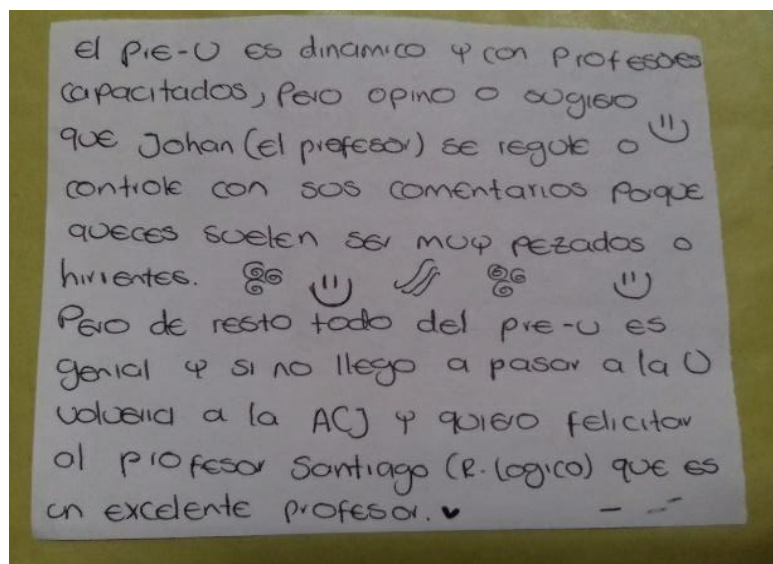 El pre-U es dinamico y con profesores
capacitados, pero opino o sugiero
que Johan (el profesor) se regule o
controle con sus comentarios porque
aveces suelen ser muy pezados o
hirientes.
Pero de resto todo del pre-u es
genial y si no llego a pasar a la U
volveria a la ACJ y quiero felicitar
al profesor Santiago (R. logico) que es
un excelente profesor.